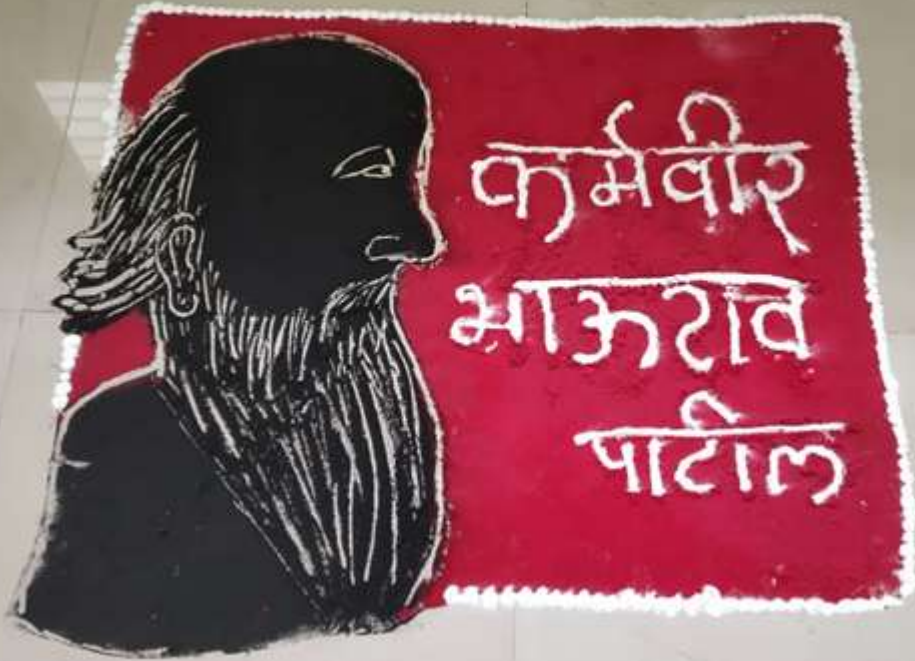 कर्मवीर
भाऊराव
पाटील